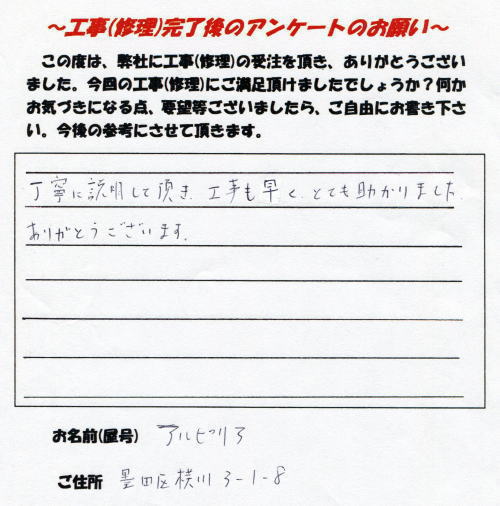 ～工事(修理)完了後のアンケートのお願い～
この度は、弊社に工事(修理)の受注を頂き、ありがとうござい
ました。今回の工事(修理)にご満足頂けましたでしょうか？何か
お気づきになる点、要望等ございましたら、ご自由にお書き下さ
い。今後の参考にさせて頂きます。
丁寧に説明して頂き、工事も早く、とても助かりました。
ありがとうございます。
お名前(屋号) アルビリア
ご住所 墨田区横川3-1-8